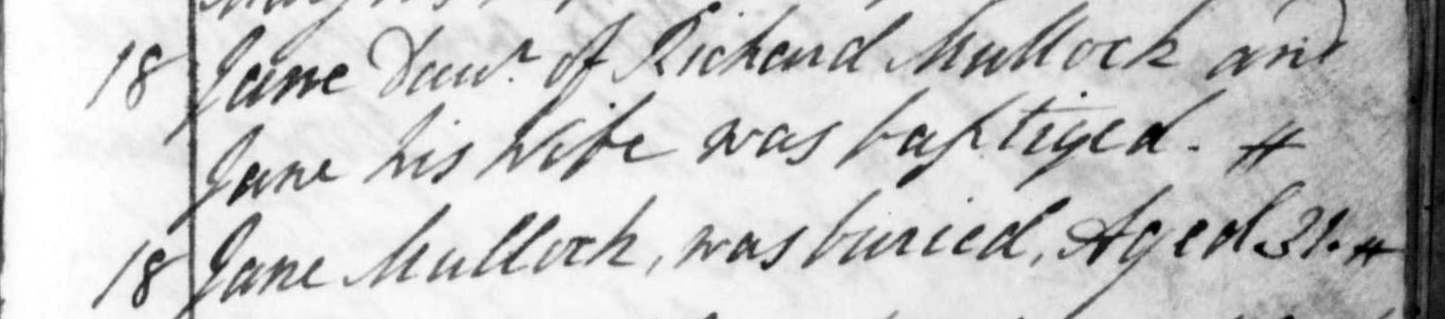 18 Jane Dawr. of Richard Mullock and
Jane his Wife was baptized. #
18 Jane Mullock, was buried, Aged 31. #